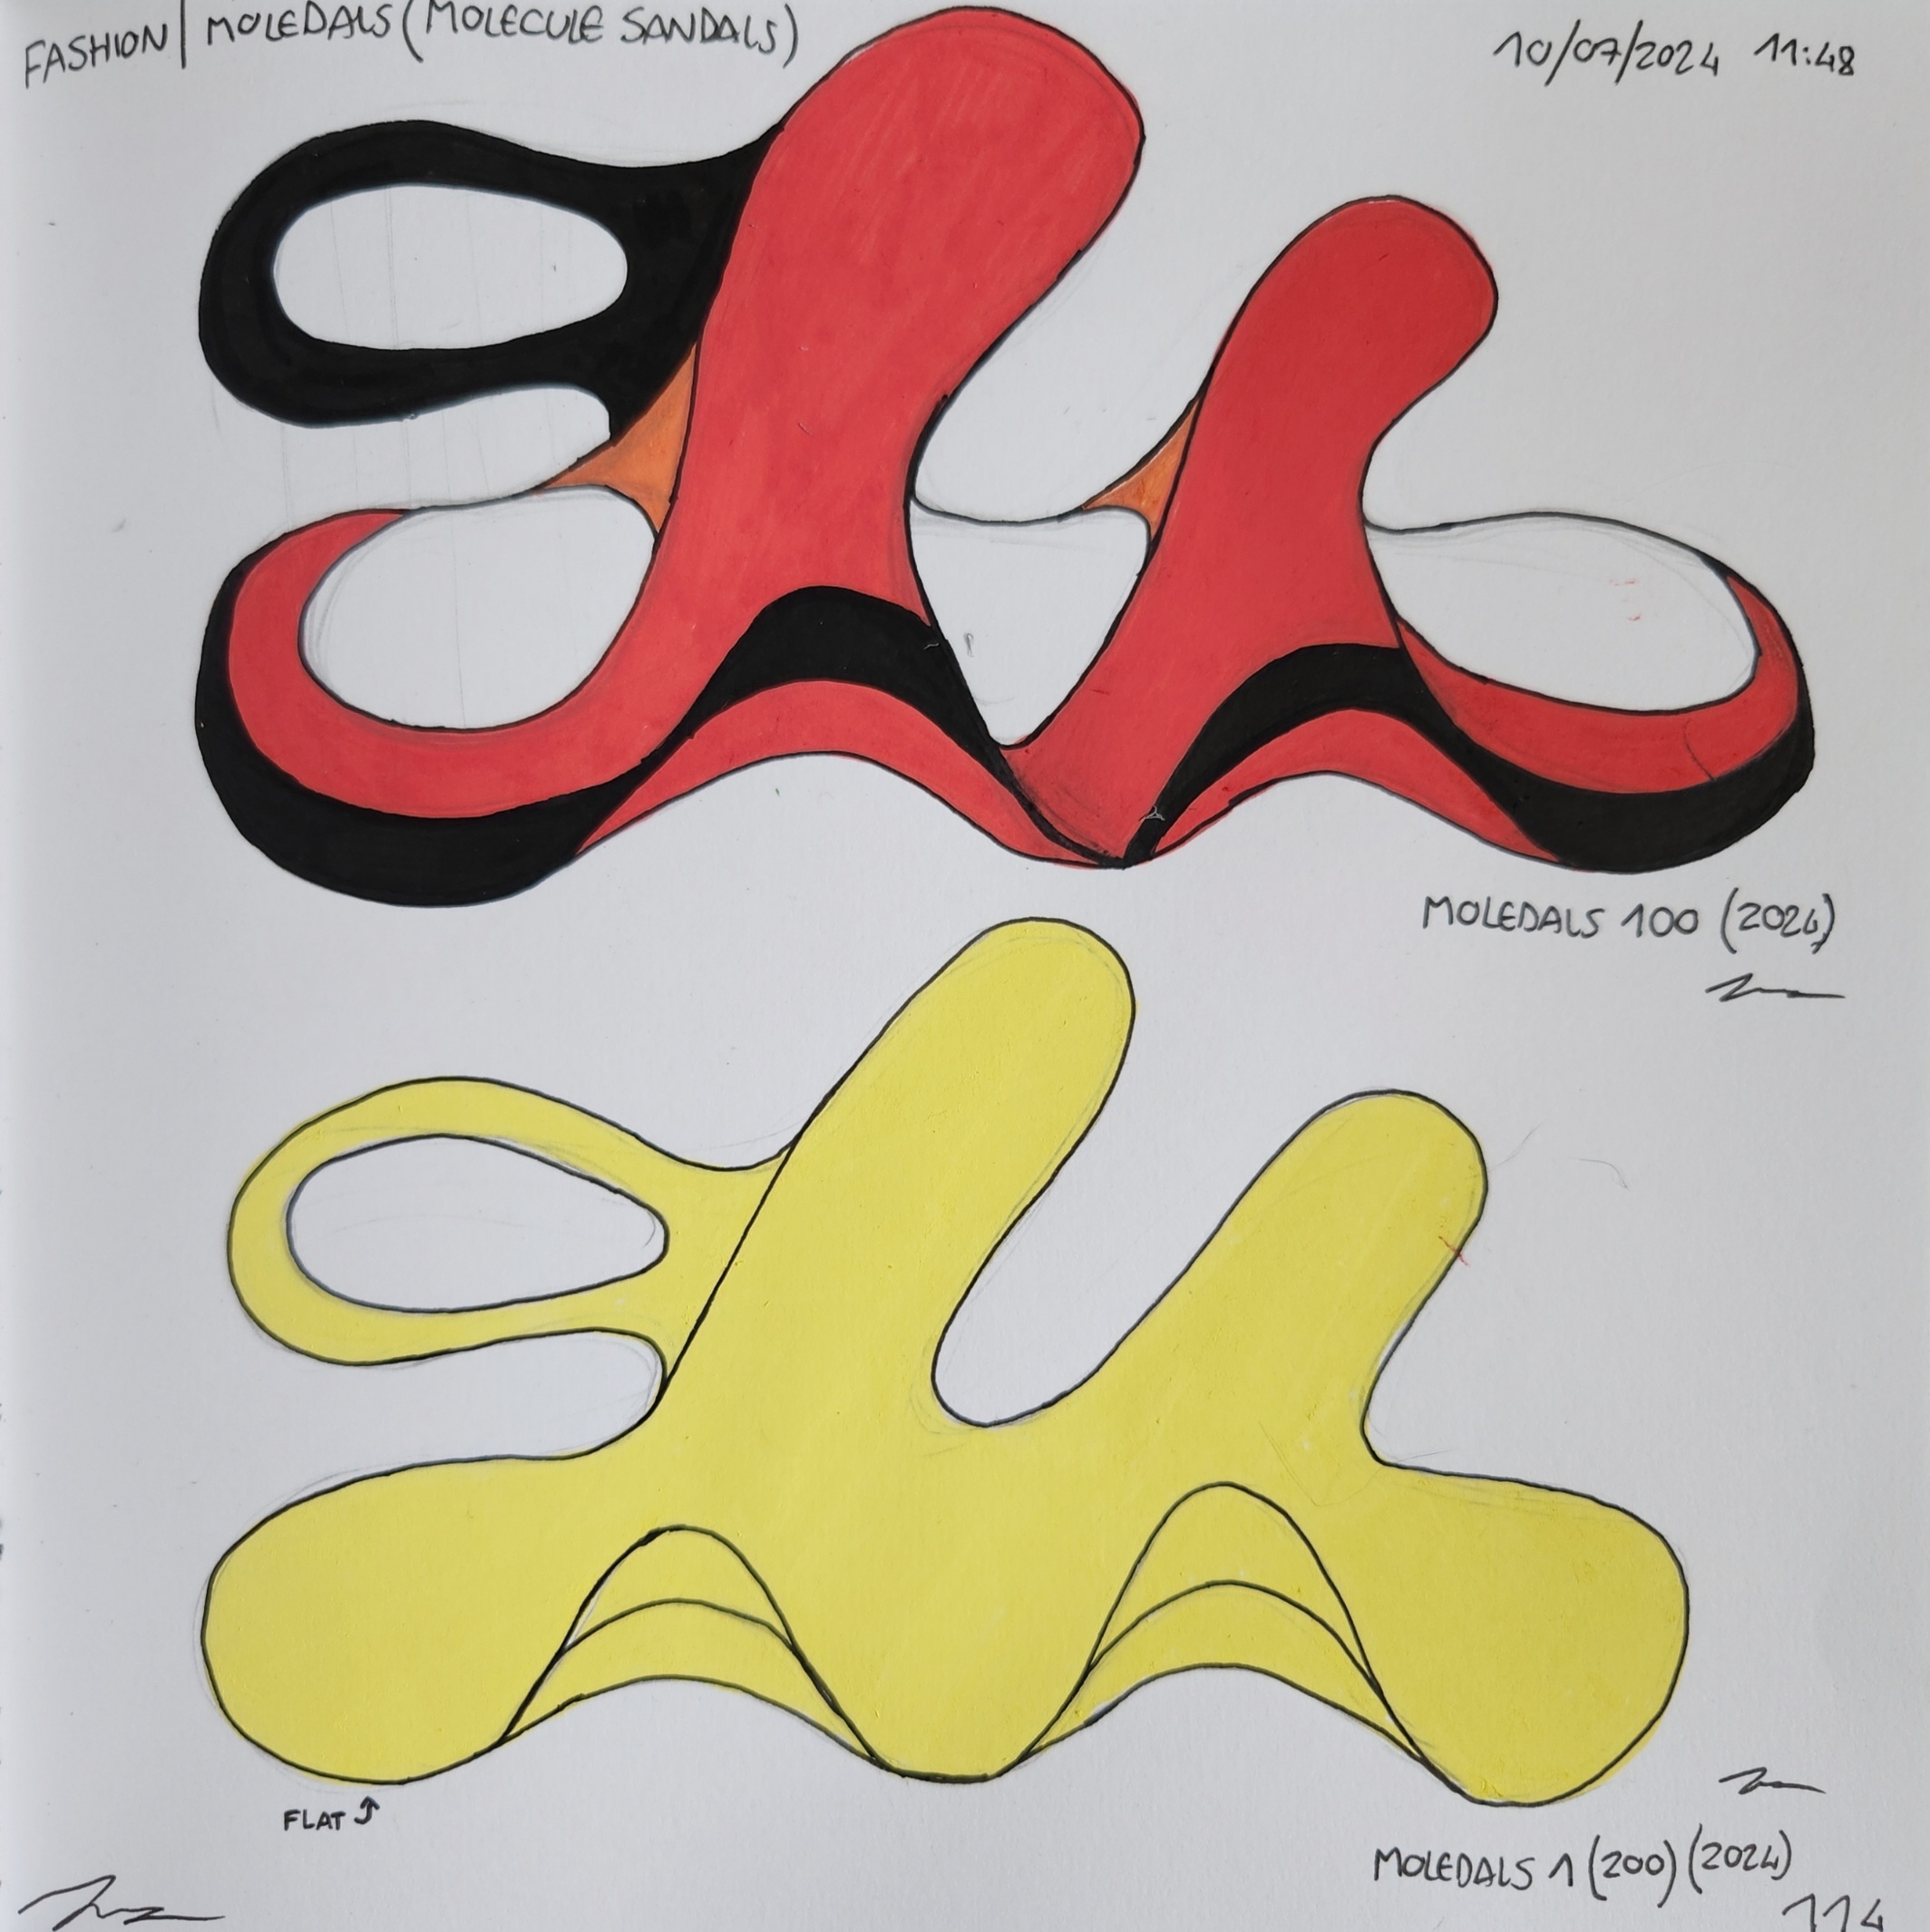 FASHION | MOLEDALS (MOLECULE SANDALS)
10/07/2024 11:48
MOLEDALS 100 (2024)
FLAT
MOLEDALS 1 (200) (2024)
114